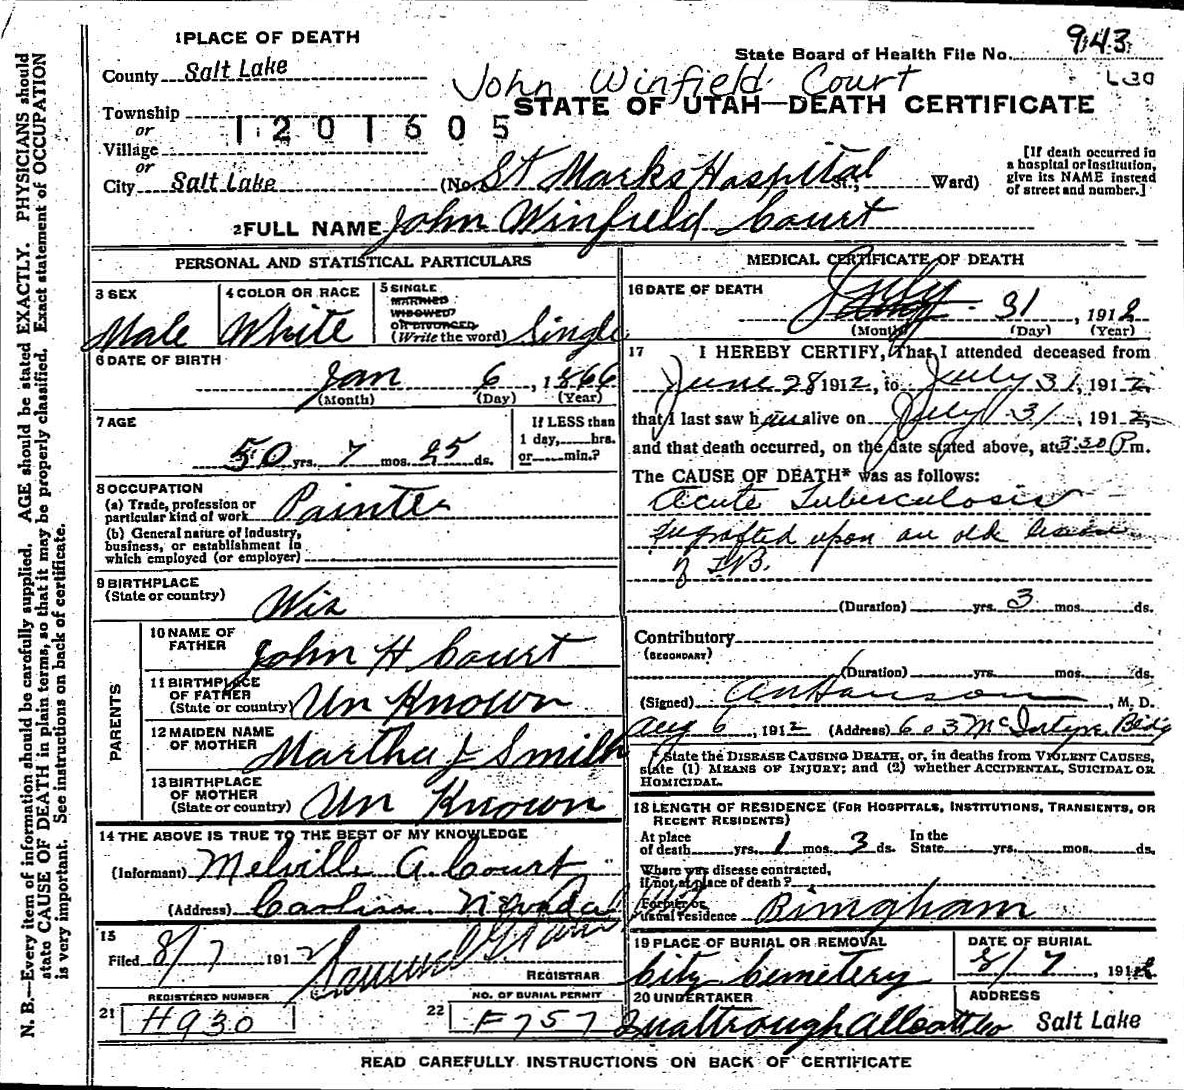 1 PLACE OF DEATH
State Board of Health File No. 943
County Salt Lake
John Winfield Court
STATE OF UTAH—DEATH CERTIFICATE
Township
1201605
or
Village
or
City Salt Lake (No. St Marks Hospital St.; Ward)
[If death occurred in
a hospital or institution,
give its NAME instead
of street and number.]
2 FULL NAME John Winfield Court
N. B.—Every item of information should be carefully supplied. AGE should be stated EXACTLY. PHYSICIANS should
state CAUSE OF DEATH in plain terms, so that it may be properly classified. Exact statement of OCCUPATION
is very important. See instructions on back of certificate.
PERSONAL AND STATISTICAL PARTICULARS
3 SEX
Male
4 COLOR OR RACE
White
5 SINGLE
MARRIED
WIDOWED
OR DIVORCED
(Write the word) Single
6 DATE OF BIRTH
Jan 6, 1866
(Month) (Day) (Year)
7 AGE
50 yrs. 7 mos. 25 ds.
If LESS than
1 day, hrs.
or min.?
8 OCCUPATION
(a) Trade, profession or
particular kind of work Painter
(b) General nature of industry,
business, or establishment in
which employed (or employer)
9 BIRTHPLACE
(State or country)
Wis
PARENTS
10 NAME OF
FATHER John H Court
11 BIRTHPLACE
OF FATHER
(State or country) Un Known
12 MAIDEN NAME
OF MOTHER Martha J Smith
13 BIRTHPLACE
OF MOTHER
(State or country) Un Known
14 THE ABOVE IS TRUE TO THE BEST OF MY KNOWLEDGE
(Informant) Melville A. Court
(Address) Carlin Nevada
15
Filed 8/7 1912
REGISTRAR
REGISTERED NUMBER
21 H930
NO. OF BURIAL PERMIT
22 F757
MEDICAL CERTIFICATE OF DEATH
16 DATE OF DEATH
July 31, 1912
(Month) (Day) (Year)
17 I HEREBY CERTIFY, That I attended deceased from
June 28 1912, to July 31, 1912,
that I last saw him alive on July 31, 1912
and that death occurred, on the date stated above, at 3:30 P m.
The CAUSE OF DEATH* was as follows:
Acute Tuberculosis
Engrafted upon an old lesion
of TB.
(Duration) yrs. 3 mos. ds.
Contributory
(SECONDARY)
(Duration) yrs. mos. ds.
(Signed) A N Hanson, M. D.
Aug 6, 1912 (Address) 603 McIntyre Bldg
State the DISEASE CAUSING DEATH, or, in deaths from VIOLENT CAUSES,
state (1) MEANS OF INJURY; and (2) whether ACCIDENTAL, SUICIDAL OR
HOMICIDAL.
18 LENGTH OF RESIDENCE (FOR HOSPITALS, INSTITUTIONS, TRANSIENTS, OR
RECENT RESIDENTS)
At place
of death yrs. 1 mos. 3 ds.
In the
State yrs. mos. ds.
Where was disease contracted,
if not at place of death?
Former or
usual residence Bingham
19 PLACE OF BURIAL OR REMOVAL
City Cemetery
DATE OF BURIAL
8/7, 1912
20 UNDERTAKER
ADDRESS
Salt Lake
READ CAREFULLY INSTRUCTIONS ON BACK OF CERTIFICATE